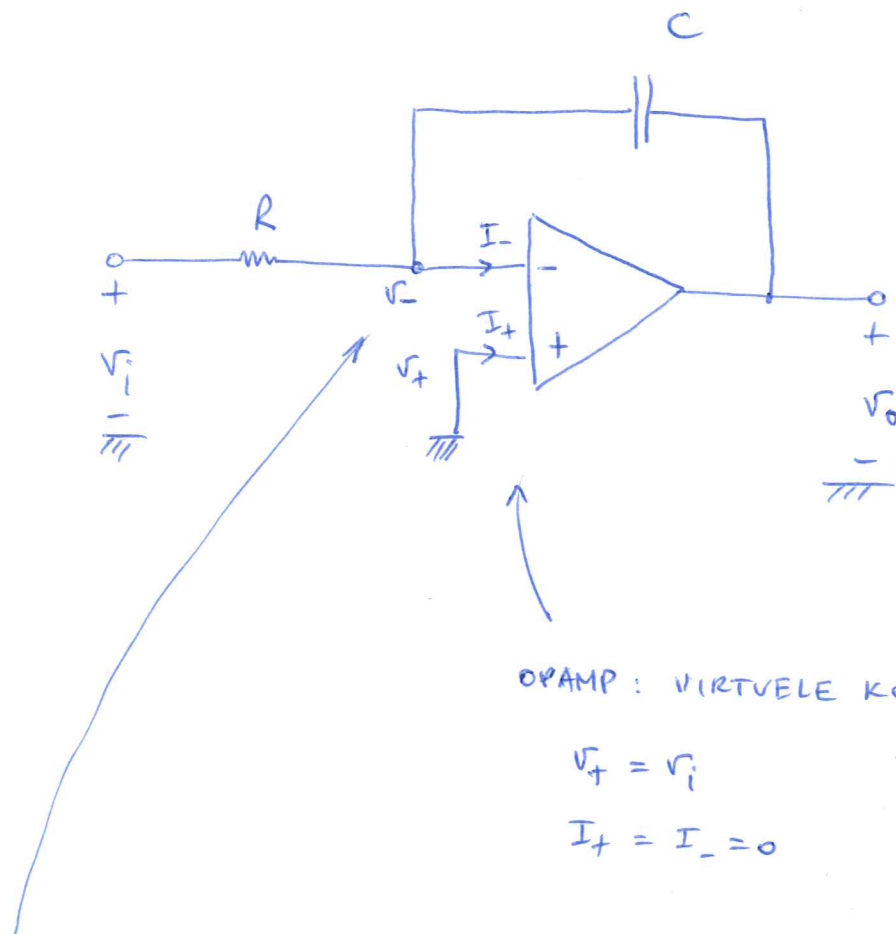 C
R
I_
-
+
v_
I+
+
v+
+
vi
-
+
vo
-
OPAMP : VIRTUELE
v+ = vi
I+ = I_ = 0